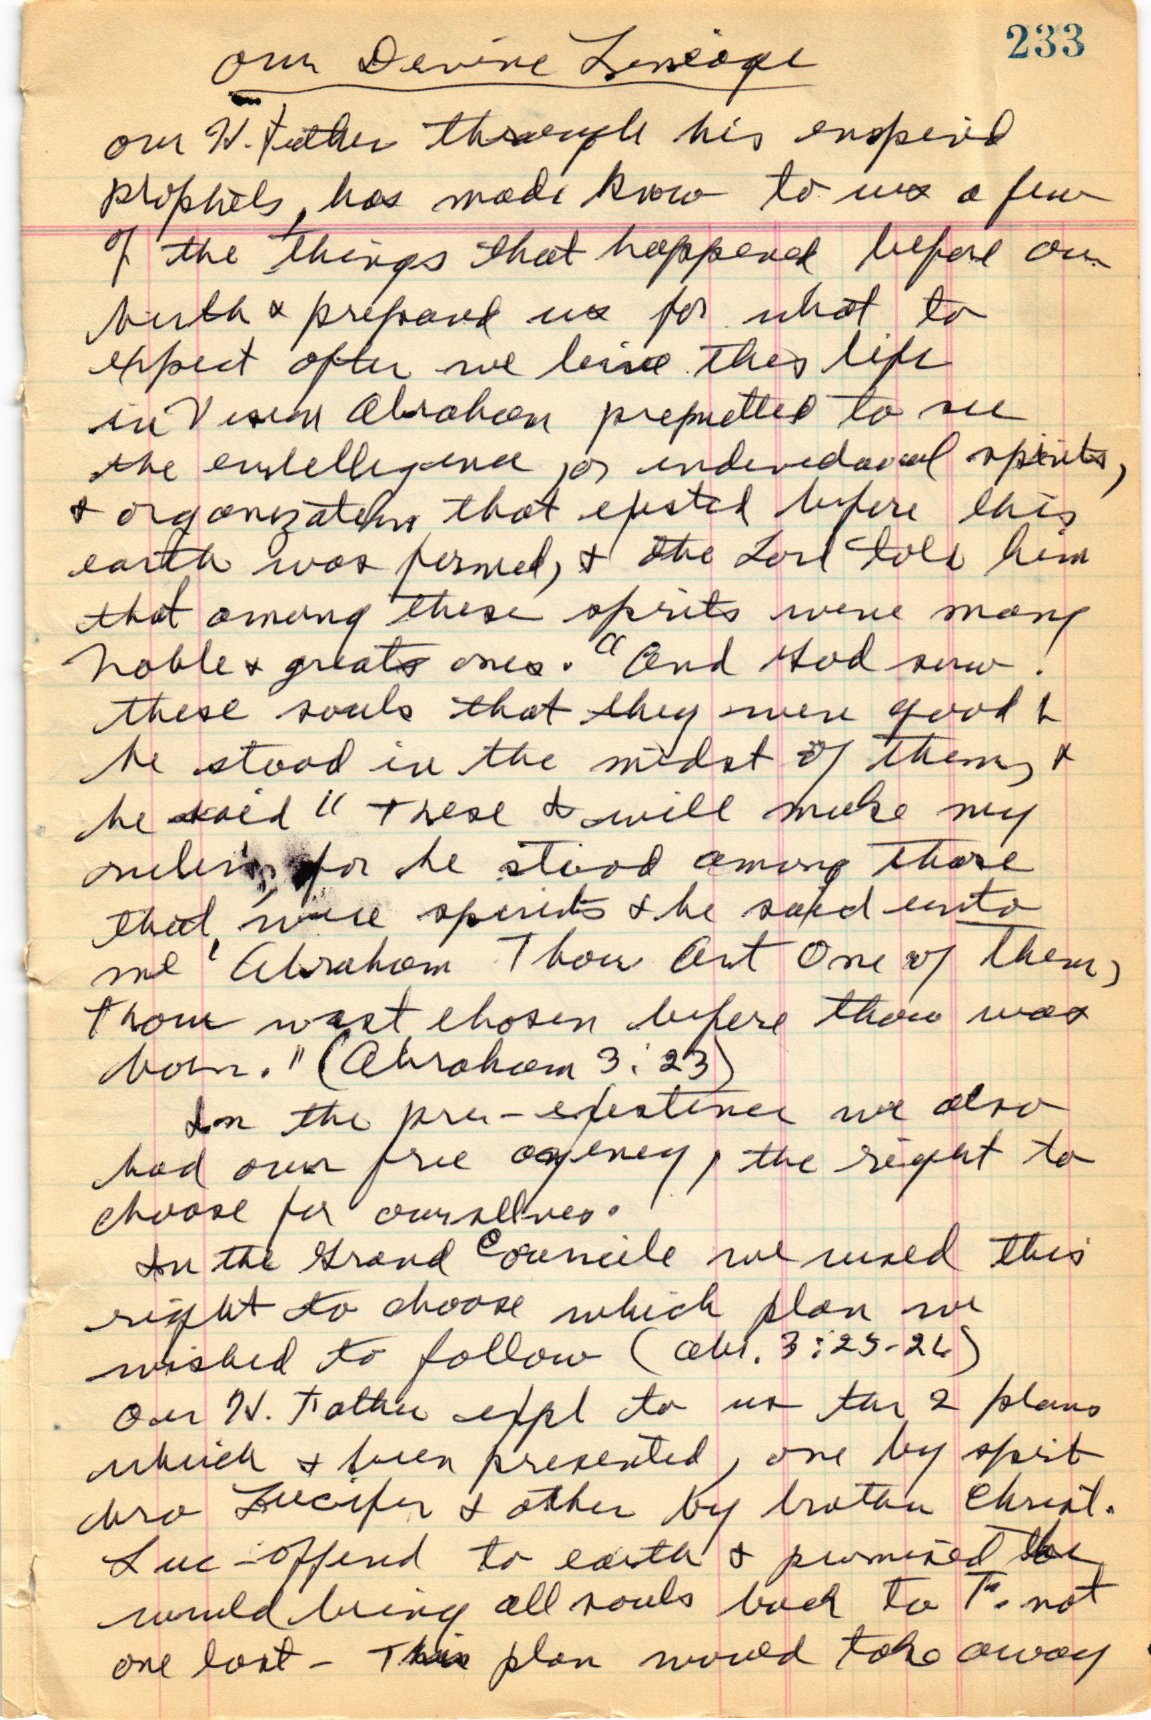 233
Our Devine Lineage
our H. Father through his enspired
prophets, has made know to us a few
of the things that happened before our
birth & prepared us for what to
expect after we leave this life
in Vision Abraham premetted to see
the entellegence, or endevedaual spirits,
& organization that existed before this
earth was formed, & the Lord told him
that among these spirits were many
Noble & greats ones. "And God saw
these souls that they were good &
he stood in the midst of them, &
he said "These I will make my
rulers, for he stood among those
that were spirits & he said unto
me "Abraham Thou Art One of them,
Thou wast chosen before thou was
born." (Abraham 3:23)
In the pre-existence we also
had our free agency, the right to
choose for ourselves.
In the Grand Councile we used this
right to choose which plan we
wished to follow (Abr. 3:25-26)
Our H. Father expl to us the 2 plans
which & been presented, one by spirit
bro Lucifer & other by brother Christ.
Luc - offered to earth & promised he
would bring all souls back to F. not
one lost - This plan would take away